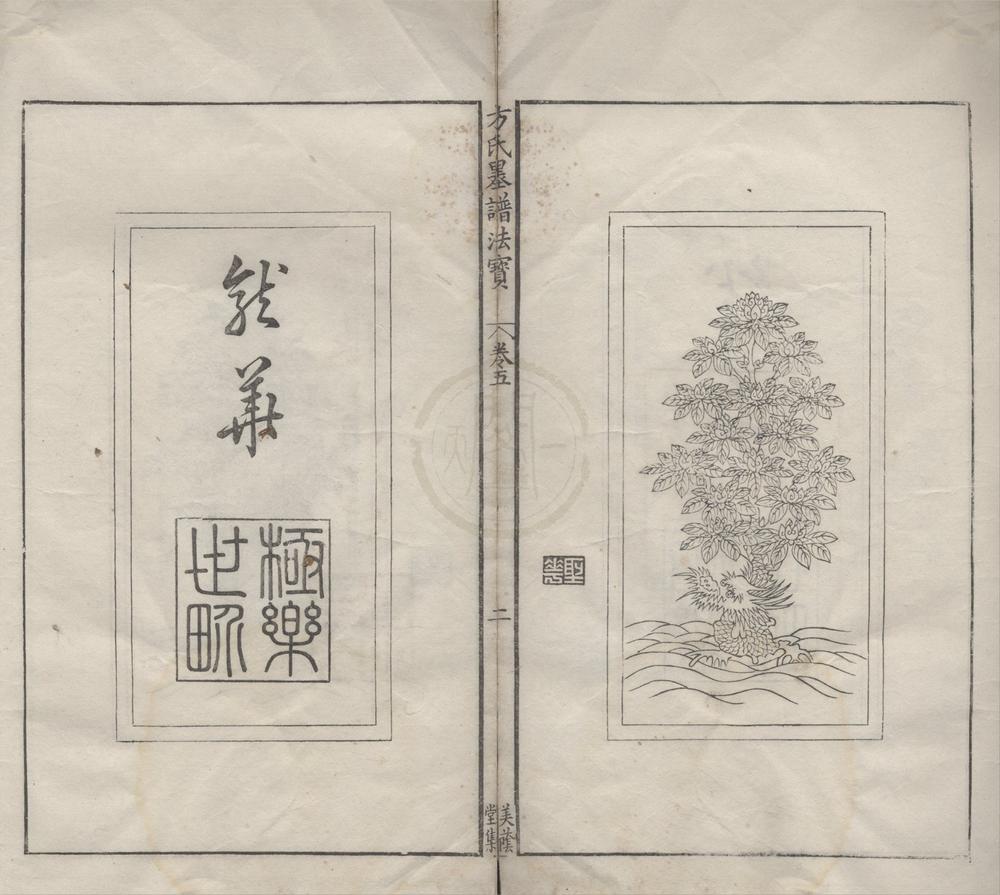 方氏墨譜法寶
卷五
二
美蔭
堂集
龍華
極樂
世畍